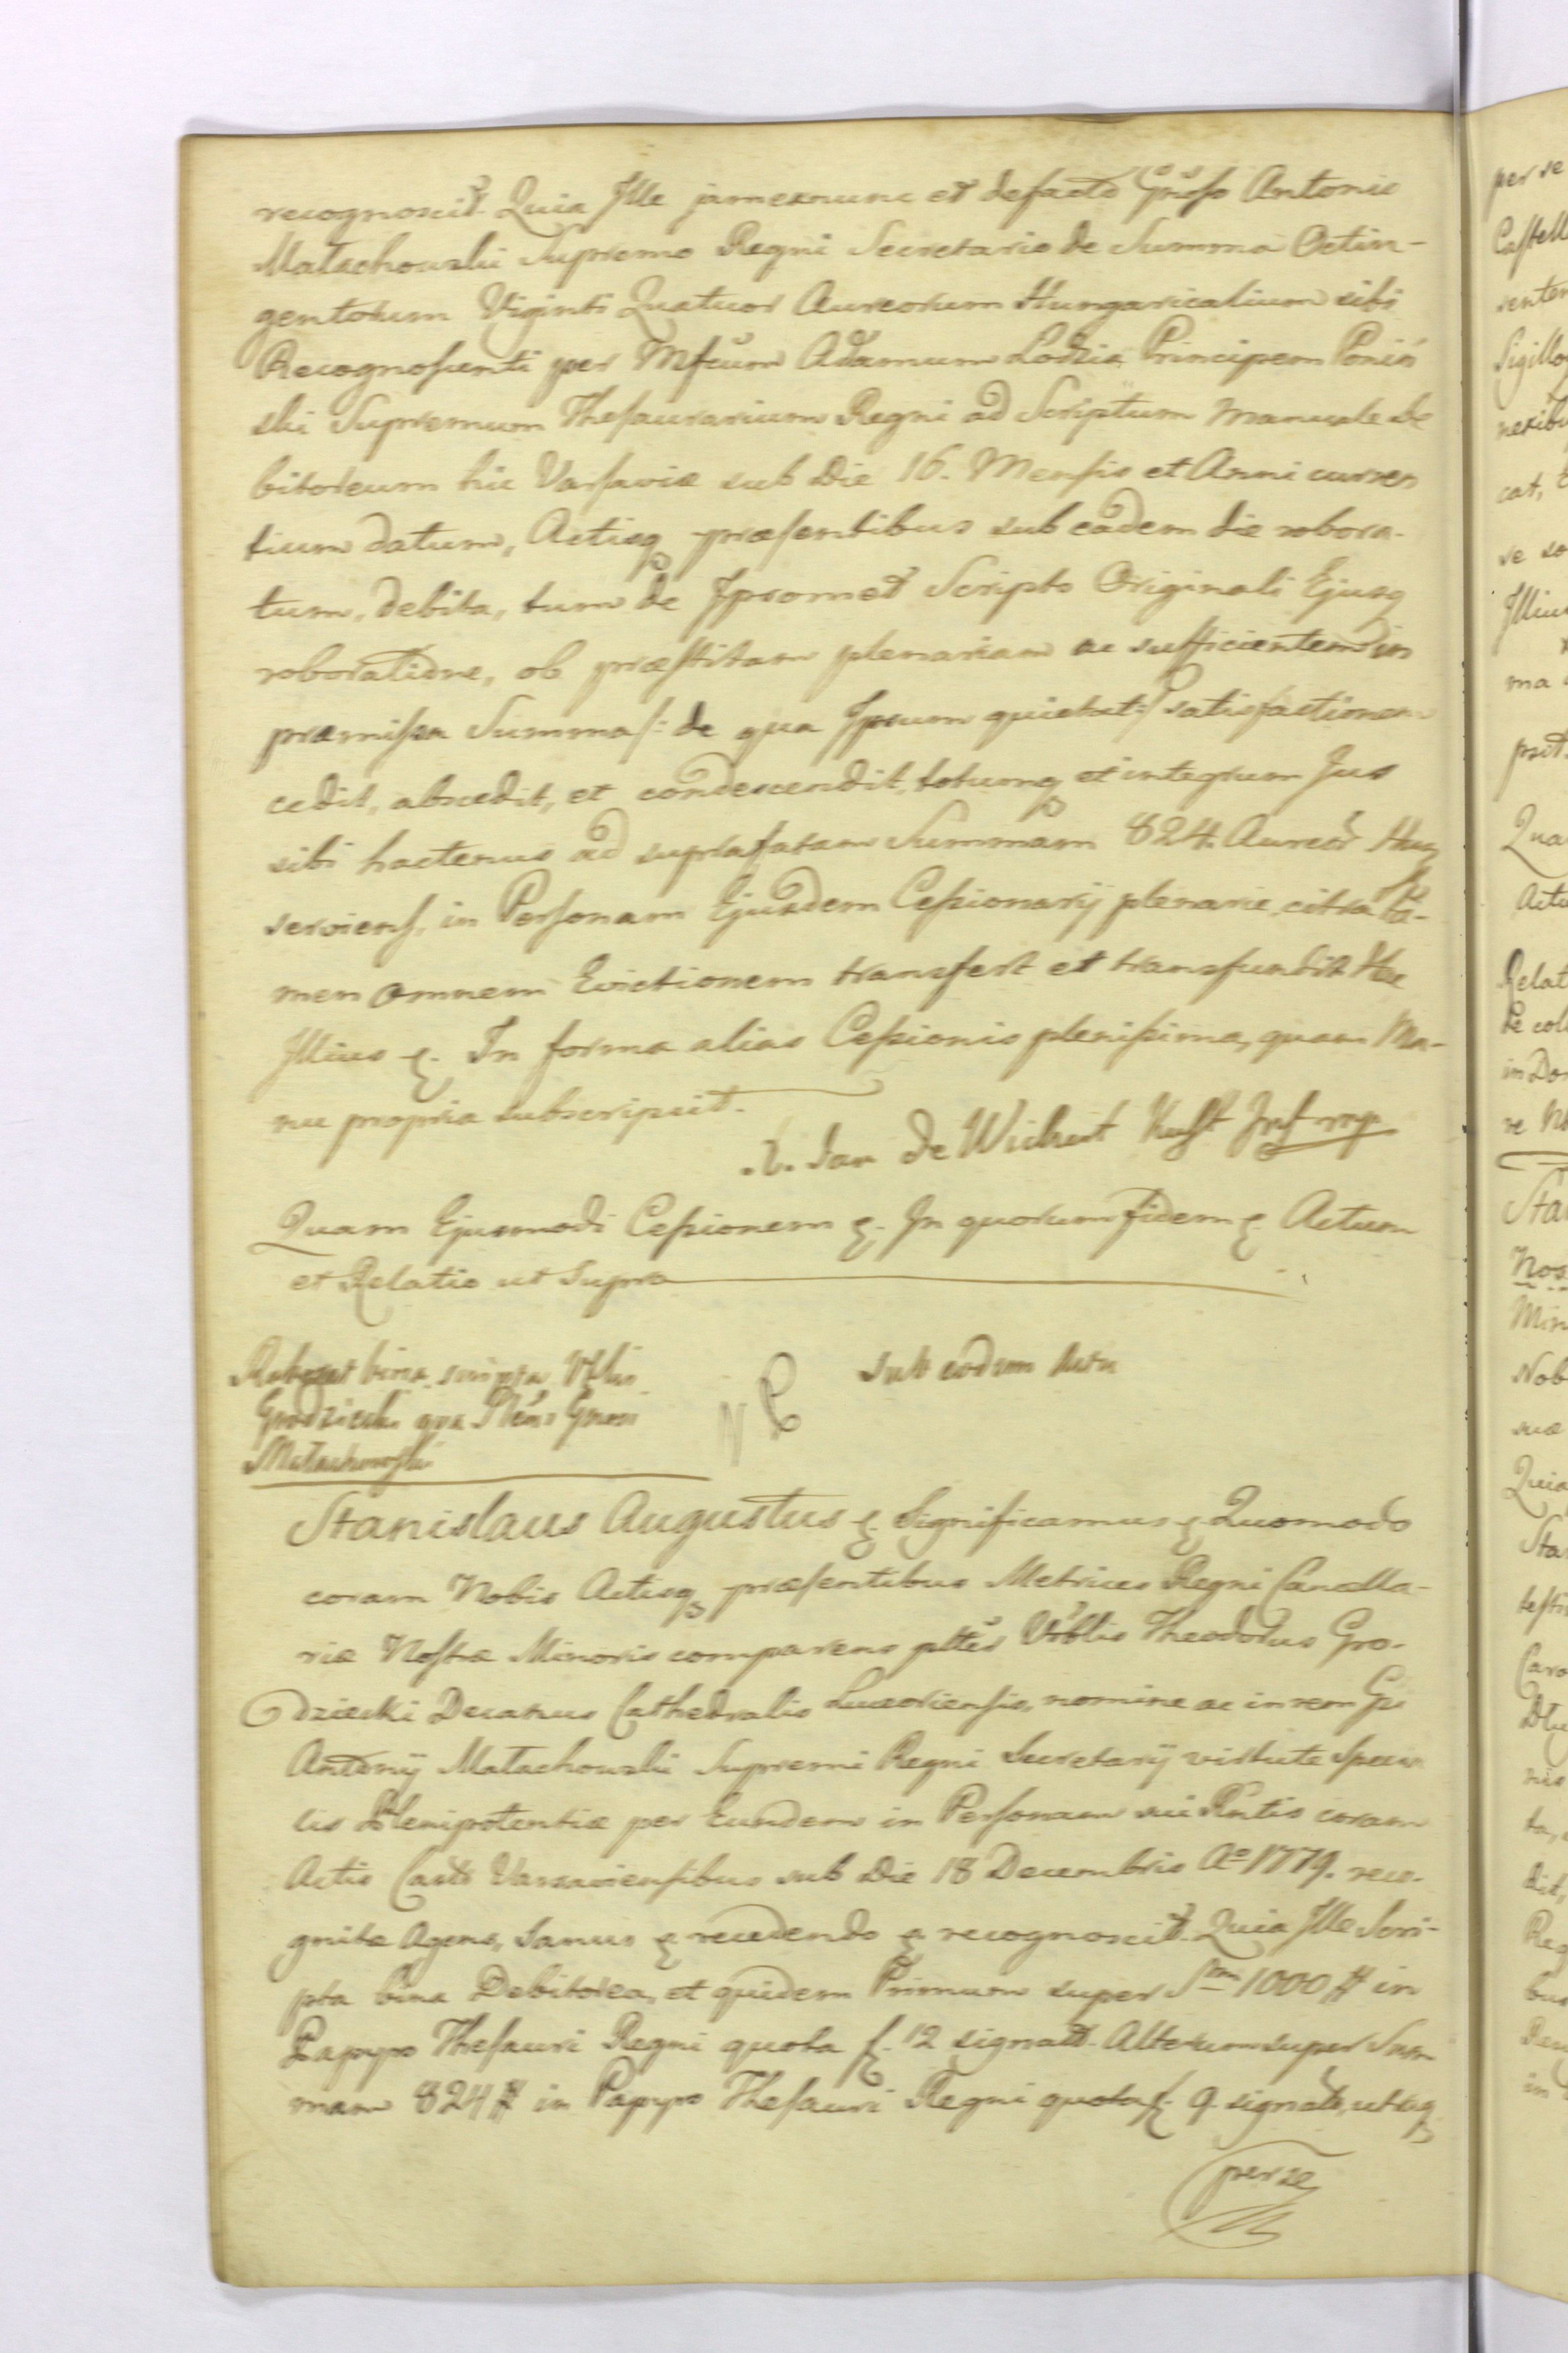 recognoscit. Quia Ille jamexnunc et defacto Gnoso Antonio
Małachowski Supremo Regni Secretario de Summa Octin-
gentorum Viginti Quatuor Aureorum Hungaricalium sibi
Recognoscenti per Mfcum Adamum Lodzia Principem Poniń
ski Supremum Thesaurarium Regni ad Scriptum Manuale de
bitoreum hic Varsaviæ sub die 16. Mensis et Anni curren
tium datum, Actisq præsentibus sub eadem die robora-
tum, debita, tum de Ipsomet Scripto Originali Ejusq
roboratione, ob præstitam plenariam ac sufficientem in
præmissa Summa /: de qua Ipsum quietat :/ satisfactionem
cedit, abscedit, et condescendit, totumq et integrum Jus
sibi hactenus ad suprafatam Summam 824. Aureor Hung
serviens, in Personam Ejusdem Cessionarij plenarie, citra ta-
men omnem Evictionem transfert et transfundit Hac
Illius &. In forma alias Cessionis plenissima, quam Ma-
nu propria subscripsit.
Jan de Wickert mp
Quam Ejusmodi Cessionem &. In quorum fidem &. Actum
et Relatio ut Supra
Roborat bina scripta
Grodzicki qua Gnosi
Małachowski
Sub eodem Actu
Stanislaus Augustus &. Significamus & Quomodo
coram Nobis Actisq præsentibus Metrices Regni Cancella-
riæ Nostræ Minoris comparens pltēr Vrblis Theodorus Gro-
dzicki Decanus Cathedralis Luceoriensis, nomine ac in rem Gi
Antonij Małachowski Supremi Regni Secretarij virtute Specia
lis Plenipotentiæ per Eundem in Personam sui Rntis coram
Actis Castr Varsaviensibus sub die 18 Decembris Ao 1779. reco-
gnitæ Agens, Sanus & recedendo & recognoscit. Quia Ille Scri-
pta bina Debitorea, et quidem Primum super Sm 1000 # in
Papyro Thesauri Regni quota f. 12 signato. Alterum super Sum
mam 824 # in Papyro Thesauri Regni quota f. 9. signato, utrūq
per se